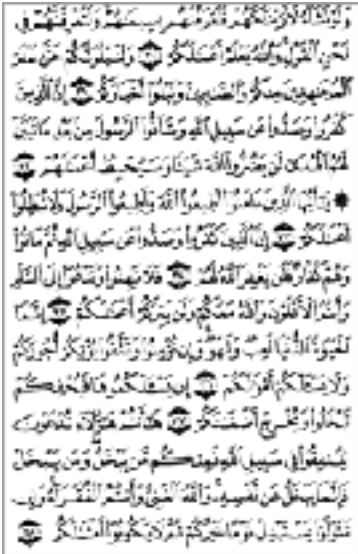 ولو نشاء لأريناكهم فلعرفتهم بسيماهم ولتعرفنهم في
لحن القول والله يعلم أعمالكم ۝ ولنبلونكم حتى نعلم
المجاهدين منكم والصابرين ونبلو أخباركم ۝ إن الذين
كفروا وصدوا عن سبيل الله وشاقوا الرسول من بعد ما تبين
لهم الهدى لن يضروا الله شيئا وسيحبط أعمالهم ۝
۞ يا أيها الذين آمنوا أطيعوا الله وأطيعوا الرسول ولا تبطلوا
أعمالكم ۝ إن الذين كفروا وصدوا عن سبيل الله ثم ماتوا
وهم كفار فلن يغفر الله لهم ۝ فلا تهنوا وتدعوا إلى السلم
وأنتم الأعلون والله معكم ولن يتركم أعمالكم ۝ إنما
الحياة الدنيا لعب ولهو وإن تؤمنوا وتتقوا يؤتكم أجوركم
ولا يسألكم أموالكم ۝ إن يسألكموها فيحفكم
تبخلوا ويخرج أضغانكم ۝ ها أنتم هؤلاء تدعون
لتنفقوا في سبيل الله فمنكم من يبخل ومن يبخل
فإنما يبخل عن نفسه والله الغني وأنتم الفقراء وإن
تتولوا يستبدل قوما غيركم ثم لا يكونوا أمثالكم ۝